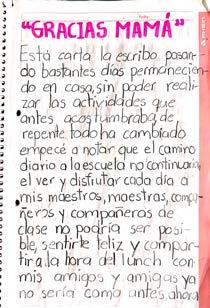 "GRACIAS MAMÁ"
Está carta la escribo pasan-
do bastantes días permanecien-
do en casa, sin poder reali-
zar las actividades que
antes acostumbraba, de
repente todo ha cambiado
empecé a notar que el camino
diario a la escuela no continuaría,
el ver y disfrutar cada día a
mis maestros, maestras, compa-
ñeros y compañeras de
clase no podría ser posi-
ble, sentirte feliz y compar-
tir a la hora del lunch con
mis amigos y amigas ya
no sería como antes, ahora